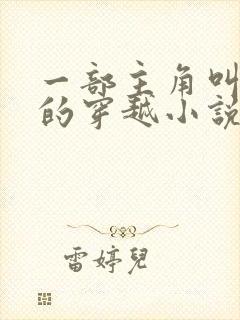 一部主角叫
的穿越小說
雷婷兒